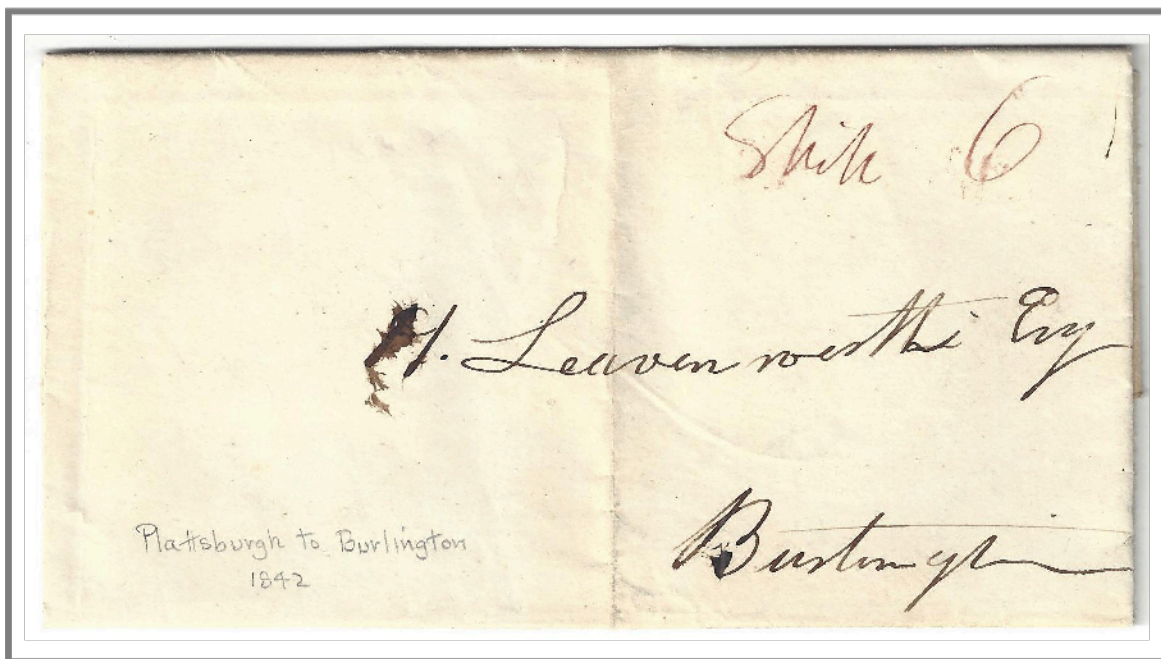 Ship 6
H. Leavenworth Esq
Burlington
Plattsburgh to Burlington
1842